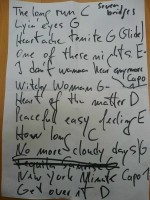 The long run C Seven bridges
Lyin' eyes G
Heartache tonite G (Slide)
One of these nights E-
I don't wanna hear anymore
Capo 1
Witchy Woman G-
Heart of the matter D
Peaceful easy feeling E
How long C
No more cloudy days G
New York Minute Capo 1
Get over it D